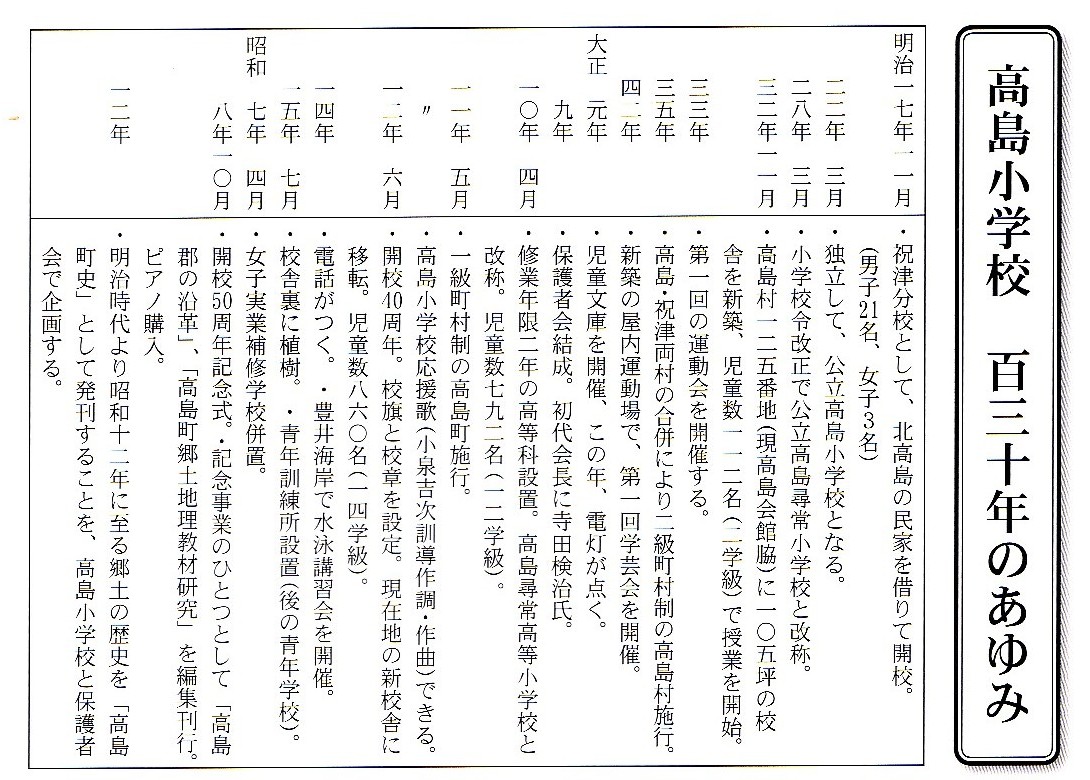 高島小学校　百三十年のあゆみ
明治一七年一一月　・祝津分校として、北高島の民家を借りて開校。
(男子21名、女子3名)
二二年　三月　・独立して、公立高島小学校となる。
二八年　三月　・小学校令改正で公立高島尋常小学校と改称。
三二年一一月　・高島村一二五番地(現高島会館脇)に一〇五坪の校
舎を新築、児童数一一二名(二学級)で授業を開始。
三三年　・第一回の運動会を開催する。
三五年　・高島・祝津両村の合併により二級町村制の高島村施行。
四二年　・新築の屋内運動場で、第一回学芸会を開催。
大正　元年　・児童文庫を開催、この年、電灯が点く。
九年　・保護者会結成。初代会長に寺田検治氏。
一〇年　四月　・修業年限二年の高等科設置。高島尋常高等小学校と
改称。児童数七九二名(一二学級)。
一一年　五月　・一級町村制の高島町施行。
〃　・高島小学校応援歌(小泉吉次訓導作調・作曲)できる。
一二年　六月　・開校40周年。校旗と校章を設定。現在地の新校舎に
移転。児童数八六〇名(一四学級)。
一四年　・電話がつく。・豊井海岸で水泳講習会を開催。
一五年　七月　・校舎裏に植樹。・青年訓練所設置(後の青年学校)。
昭和　七年　四月　・女子実業補修学校併置。
八年一〇月　・開校50周年記念式。・記念事業のひとつとして「高島
郡の沿革」、「高島町郷土地理教材研究」を編集刊行。
ピアノ購入。
一二年　・明治時代より昭和十二年に至る郷土の歴史を「高島
町史」として発刊することを、高島小学校と保護者
会で企画する。